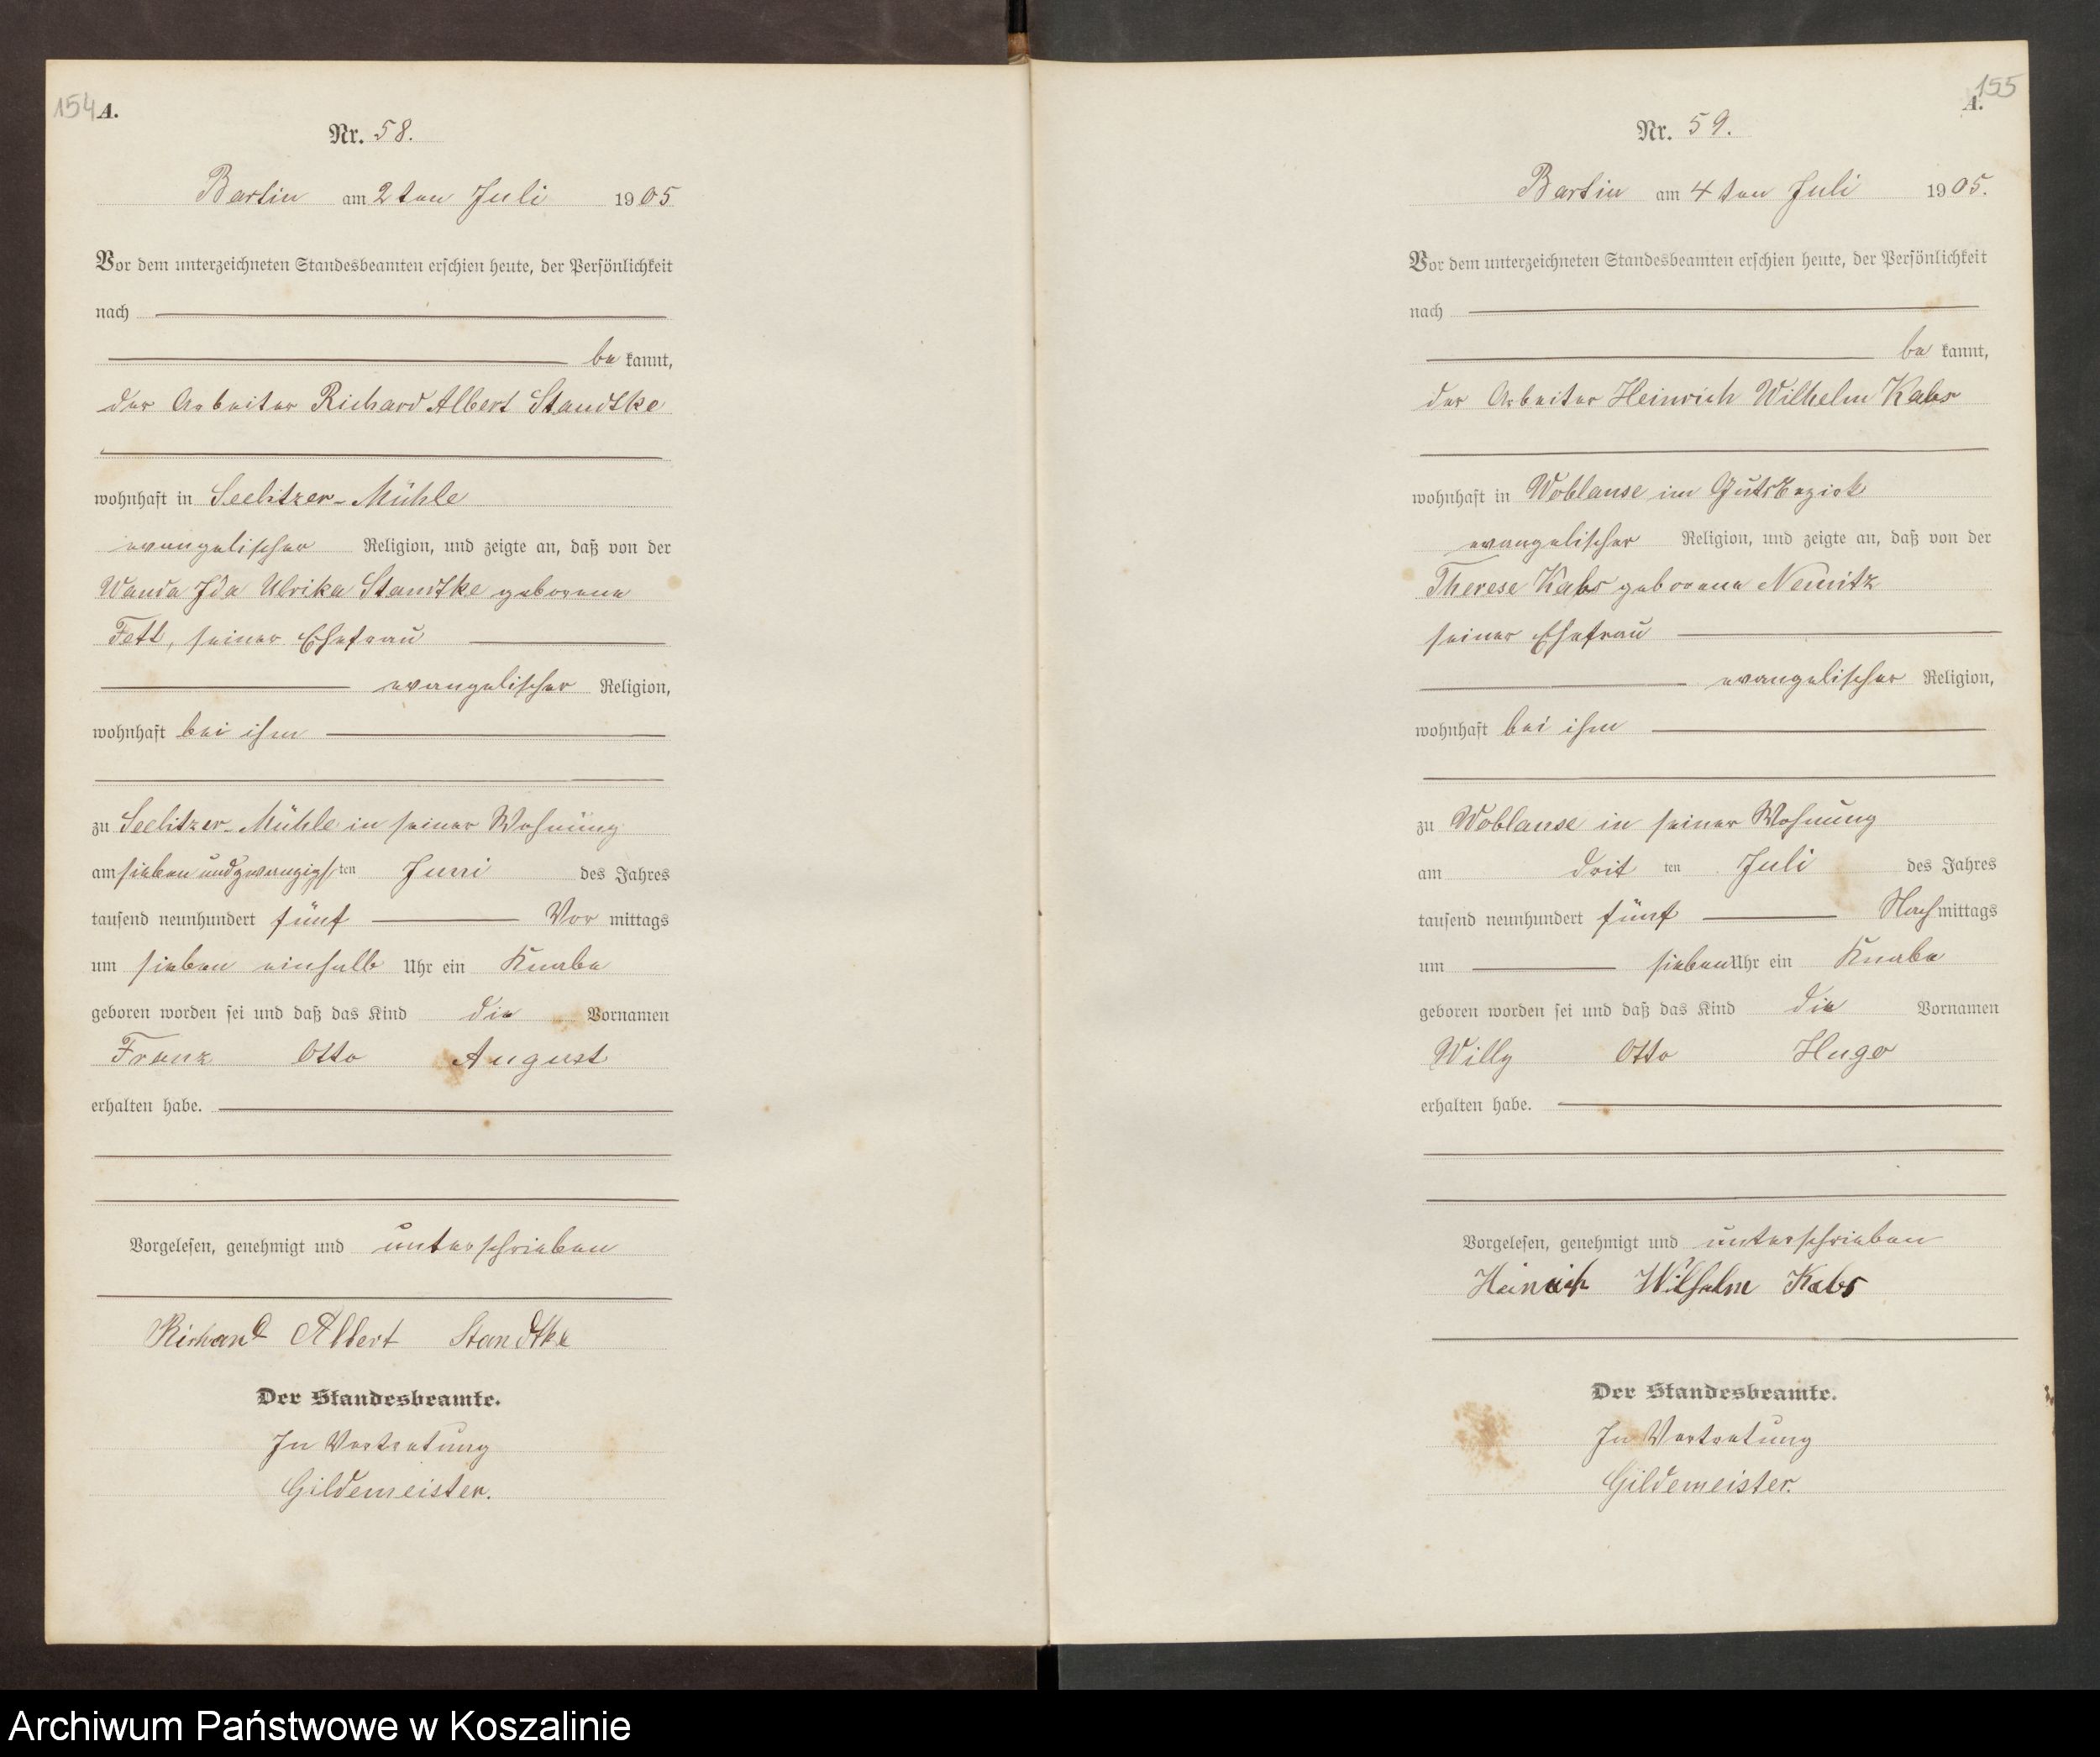 154
A.
Nr. 58.
Bartin am 2ten Juli 1905
Vor dem unterzeichneten Standesbeamten erschien heute, der Persönlichkeit
nach
be kannt,
der Arbeiter Richard Albert Standtke
wohnhaft in Seelitzer-Mühle
evangelischer Religion, und zeigte an, daß von der
Wanda Ida Ulrika Standtke geborene
Fett, seiner Ehefrau
evangelischer Religion,
wohnhaft bei ihm
zu Seelitzer-Mühle in seiner Wohnung
am siebenundzwanzigsten Juni des Jahres
tausend neunhundert fünf Vor mittags
um sieben einhalb Uhr ein Knabe
geboren worden sei und daß das Kind die Vornamen
Franz Otto August
erhalten habe.
Vorgelesen, genehmigt und unterschrieben
Richard Albert Standtke
Der Standesbeamte.
In Vertretung
Gildemeister.
155
A.
Nr. 59.
Bartin am 4ten Juli 1905.
Vor dem unterzeichneten Standesbeamten erschien heute, der Persönlichkeit
nach
be kannt,
der Arbeiter Heinrich Wilhelm Kabs
wohnhaft in Woblanse im Gutsbezirk
evangelischer Religion, und zeigte an, daß von der
Therese Kabs geborene Nemitz
seiner Ehefrau
evangelischer Religion,
wohnhaft bei ihm
zu Woblanse in seiner Wohnung
am drit ten Juli des Jahres
tausend neunhundert fünf Nachmittags
um sieben Uhr ein Knabe
geboren worden sei und daß das Kind die Vornamen
Willy Otto Hugo
erhalten habe.
Vorgelesen, genehmigt und unterschrieben
Heinrich Wilhelm Kabs
Der Standesbeamte.
In Vertretung
Gildemeister.
Archiwum Państwowe w Koszalinie